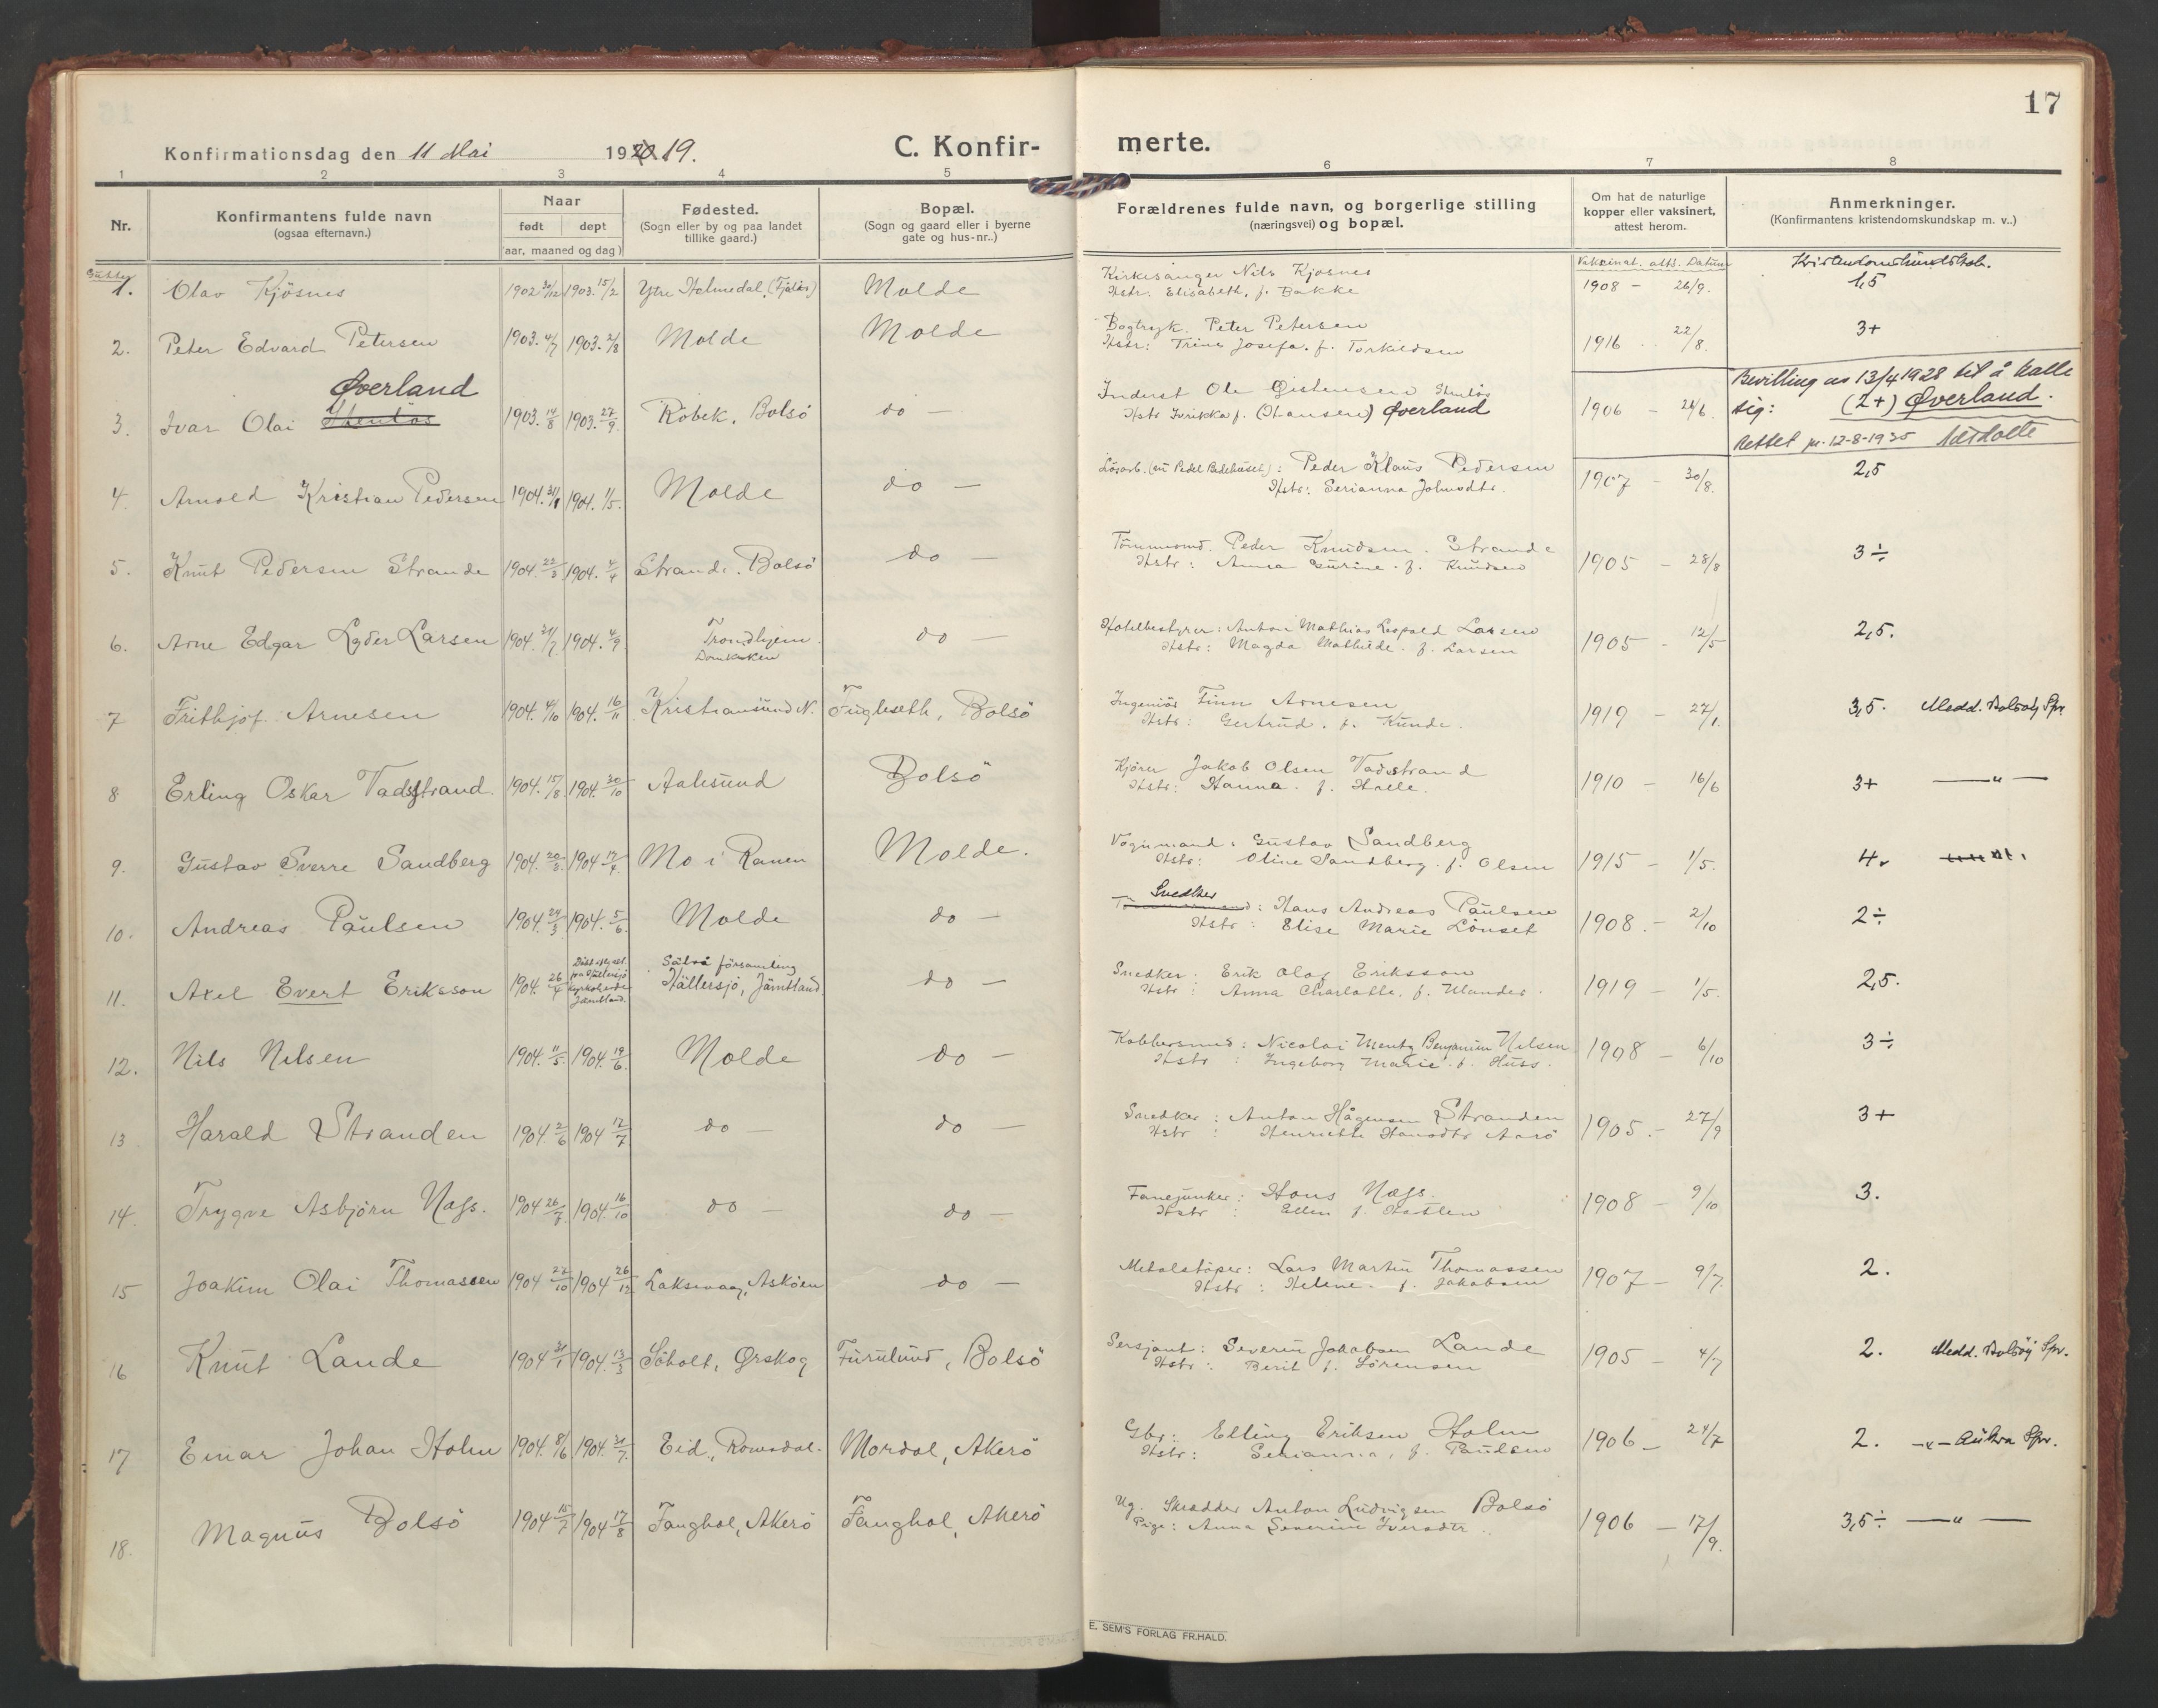 17
Konfirmationsdag den 11 Mai 1920 19.
C. Konfir- merte.
1 2 3 4 5 6 7 8
Nr.
Konfirmantens fulde navn
(ogsaa efternavn.)
Naar
født døpt
(aar, maaned og dag)
Fødested.
(Sogn eller by og paa landet
tillike gaard.)
Bopæl.
(Sogn og gaard eller i byerne
gate og hus-nr..)
Forældrenes fulde navn, og borgerlige stilling
(næringsvei) og bopæl.
Om hat de naturlige
kopper eller vaksinert,
attest herom.
Anmerkninger.
(Konfirmantens kristendomskundskap m. v..)
Gutter
Vaksinat. atts. Datum
Kristendomskundskab.
1. Olav Kjösnes 1902 30/12 1903. 15/2 Ytre Holmedal, (Fjaler) Molde
Kirkesanger Nils Kjosnes
Hstr: Elisabeth, f. Bakke
1908 – 26/9. 1,5
2. Peter Edvard Petersen 1903. 4/7 1903. 2/8 Molde Molde
Bogtryk. Peter Petersen
Hstr: Trine Josefa. f. Torkildsen
1916 22/8. 3+
Øverland
3. Ivar Olai Stenlös 1903. 14/8 1903. 27/9. Röbek, Bolsö do –
Inderst Ole Øistensen Stenlös
Hstr (Hansen) Øverland
1906 – 26/6.
Bevilling av 13/4 1928 til å kalle
sig: (2+) Øverland.
Rettet pr. 12-8-1935
4. Arnold Kristian Pedersen 1904. 1904. 1/5. Molde do –
Lösarb. : Peder Klaus Pedersen
Hstr: Serianna Johnsdtr.
1907 – 30/8. 2,5
5. Knut Pedersen Strande 1904. 22/3 1904. 4/4 Strande. Bolsö do –
Tömmermd. Peder Knudsen Strande
Hstr: Anna Gurine. f. Knudsen
1905 – 28/8 3÷
6. Arne Edgar Lyder Larsen 1904. 1904. 4/9. Trondhjem. do –
Domkirken
Hotelbestyrer: Anton Mathias Leopold Larsen
Hstr: Magda Mathilde. f. Larsen
1905 – 12/5 2,5.
7 Frithjof Arnesen 1904. 4/10 1904. 16/11 Kristiansund N. Fugleseth, Bolsö
Ingeniör Finn Arnesen
Hstr: Gertrud. f. Kunde.
1919 – 27/1. 3,5. Medd. Bolsöy Spr.
8 Erling Oskar Vadsstrand. 1904. 15/8. 1904. 30/10 Aalesund Bolsö
Kjörer Jakob Olsen Vadstrand
Hstr: Hanna. f. Holle.
1910 – 16/6 3+ —"—
9. Gustav Sverre Sandberg 1904. 20/3. 1904 17/4. Mo i Ranen Molde.
Vognmand: Gustav Sandberg
Hstr: Oline Sandberg. f. Olsen
1915 – 1/5. 4.
10. Andreas Paulsen 1904. 24/3 1904. 5/6. Molde do –
Snedker
: Hans Andreas Paulsen
Hstr: Elise Marie Lönset
1908. – 2/10 2÷
11. Axel Evert Eriksson 1904. 26/4 Hällersjö, Jämtland do –
församling
Jämtland.
Snedker: Erik Olof Eriksson
Hstr: Anna Charlotte, f. Ulander.
1919 – 1/5. 2,5.
12. Nils Nilsen 1904. 11/5. 1904. 19/6. Molde do –
Kobbersmed: Nicolai Mentz Benjamin Nilsen
Hstr: Ingeborg Marie. f. Huss.
1908 – 6/10 3÷
13 Harald Stranden 1904. 2/6 1904 17/7 do – do –
Snedker: Anton Hågensen Stranden
Hstr: Henriette Hansdtr Aarö
1905. – 27/9 3+
14. Trygve Asbjörn Næss. 1904 26/8 1904. 16/10 do – do –
Fanejunker: Hans Næss.
Hstr: Ellen f. Hatlen
1908 – 9/10 3.
15 Joakim Olai Thomassen 1904 22/10 1904 26/12 Laksevaag, Asköen do –
Metalstöper: Lars Martin Thomassen
Hstr: Helene. f. Jakobsen
1907 – 9/7. 2.
16 Knut Lande 1904 31/1 1904. 13/3 Söholt, Ørskog Furulund, Bolsö
Sersjant: Severin Jakobsen Lande
Hstr: Berit f. Sörensen
1905 – 4/7 2. Medd. Bolsöy Spr.
17 Einar Johan Holm 1904. 8/6 1904. 30/7. Eid, Romsdal. Mordal, Akerö
Gbr: Elling Eriksen Holm
Hstr: Serianna, f. Paulsen
1906 – 24/7 2. –"– Aukra Spr.
18. Magnus Bolsö 1904 15/7 1904 17/8 Fanghol, Akerö Fanghol, Akerö
Ug. Skrædder Anton Ludvigsen Bolsö
Pige: Anna Severine Iversdtr.
1906 – 17/9. 3,5÷ —"—
E. SEM'S FORLAG FR.HALD.